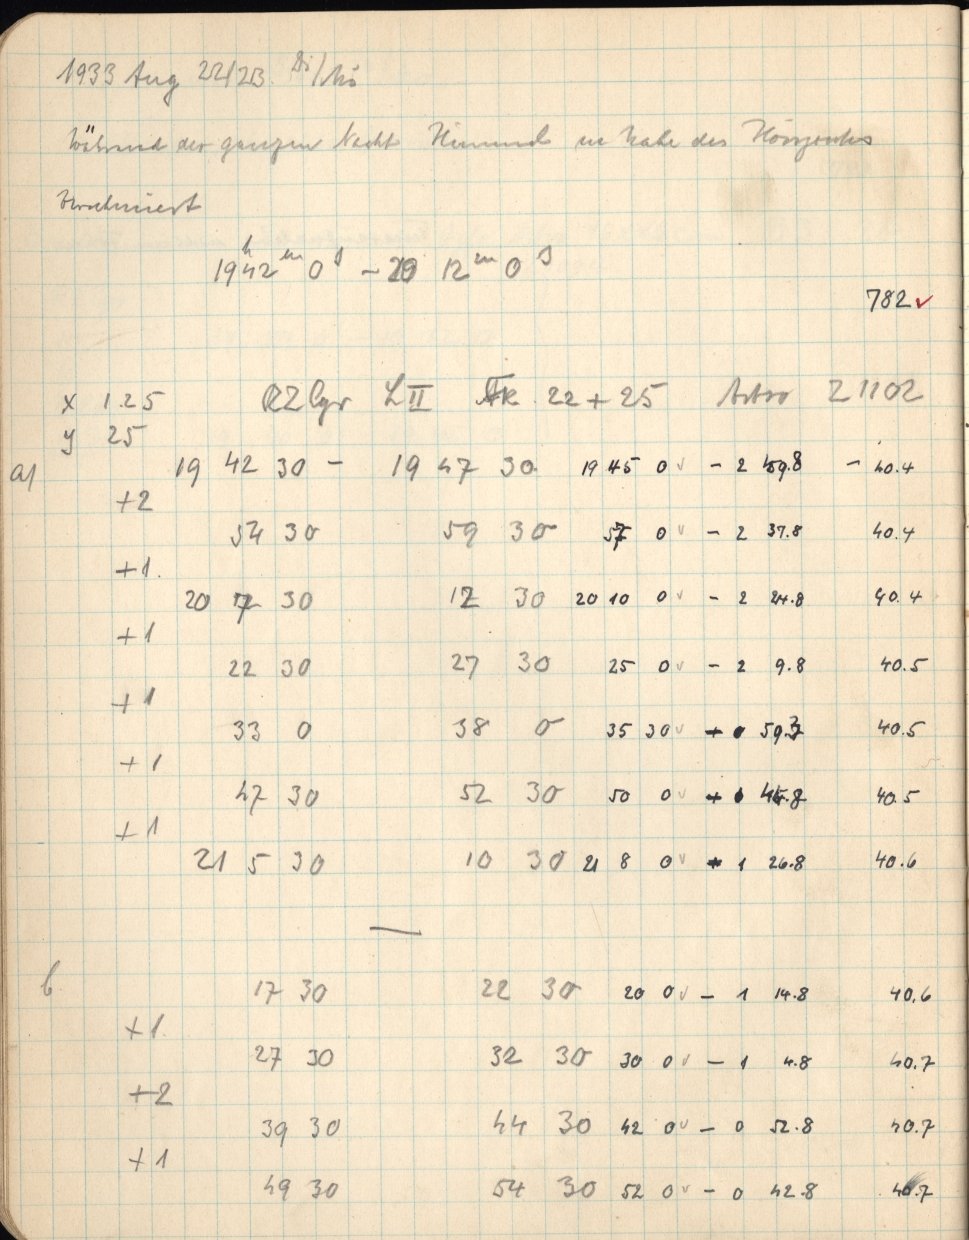 1933 Aug 22/23.
Während der ganzen Nacht Himmel in Nähe des Horizontes
verschmiert
19h 42m 0s - 20 12m 0s
782 ✓
x 1.25 RZlgr L II 22 + 25 Astro Z 1102
y 25
a) 19 42 30 - 19 47 30 19 45 0 ✓ - 2 49.8 - 40.4
+2
54 30 59 30 57 0 ✓ - 2 37.8 40.4
+1.
20 7 30 12 30 20 10 0 ✓ - 2 24.8 40.4
+1
22 30 27 30 25 0 ✓ - 2 9.8 40.5
+1
33 0 38 0 35 30 ✓ 40.5
+1
47 30 52 30 50 0 ✓ 40.5
+1
21 5 30 10 30 21 8 0 ✓ 1 26.8 40.6
—
b 17 30 22 30 20 0 ✓ - 1 14.8 40.6
+1
27 30 32 30 30 0 ✓ - 1 4.8 40.7
+2
39 30 44 30 42 0 ✓ - 0 52.8 40.7
+1
49 30 54 30 52 0 ✓ - 0 42.8 40.7